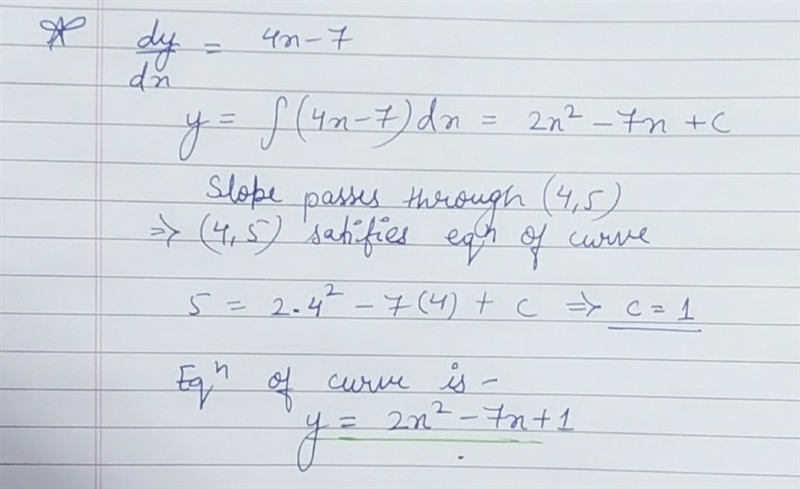 * dy/dx = 4x-7
y = ∫(4x-7)dx = 2x² -7x +c
Slope passes through (4,5)
⇒ (4,5) satifies eqⁿ of curve
5 = 2.4² - 7(4) + c ⇒ c = 1
Eqⁿ of curve is -
y = 2x² - 7x + 1